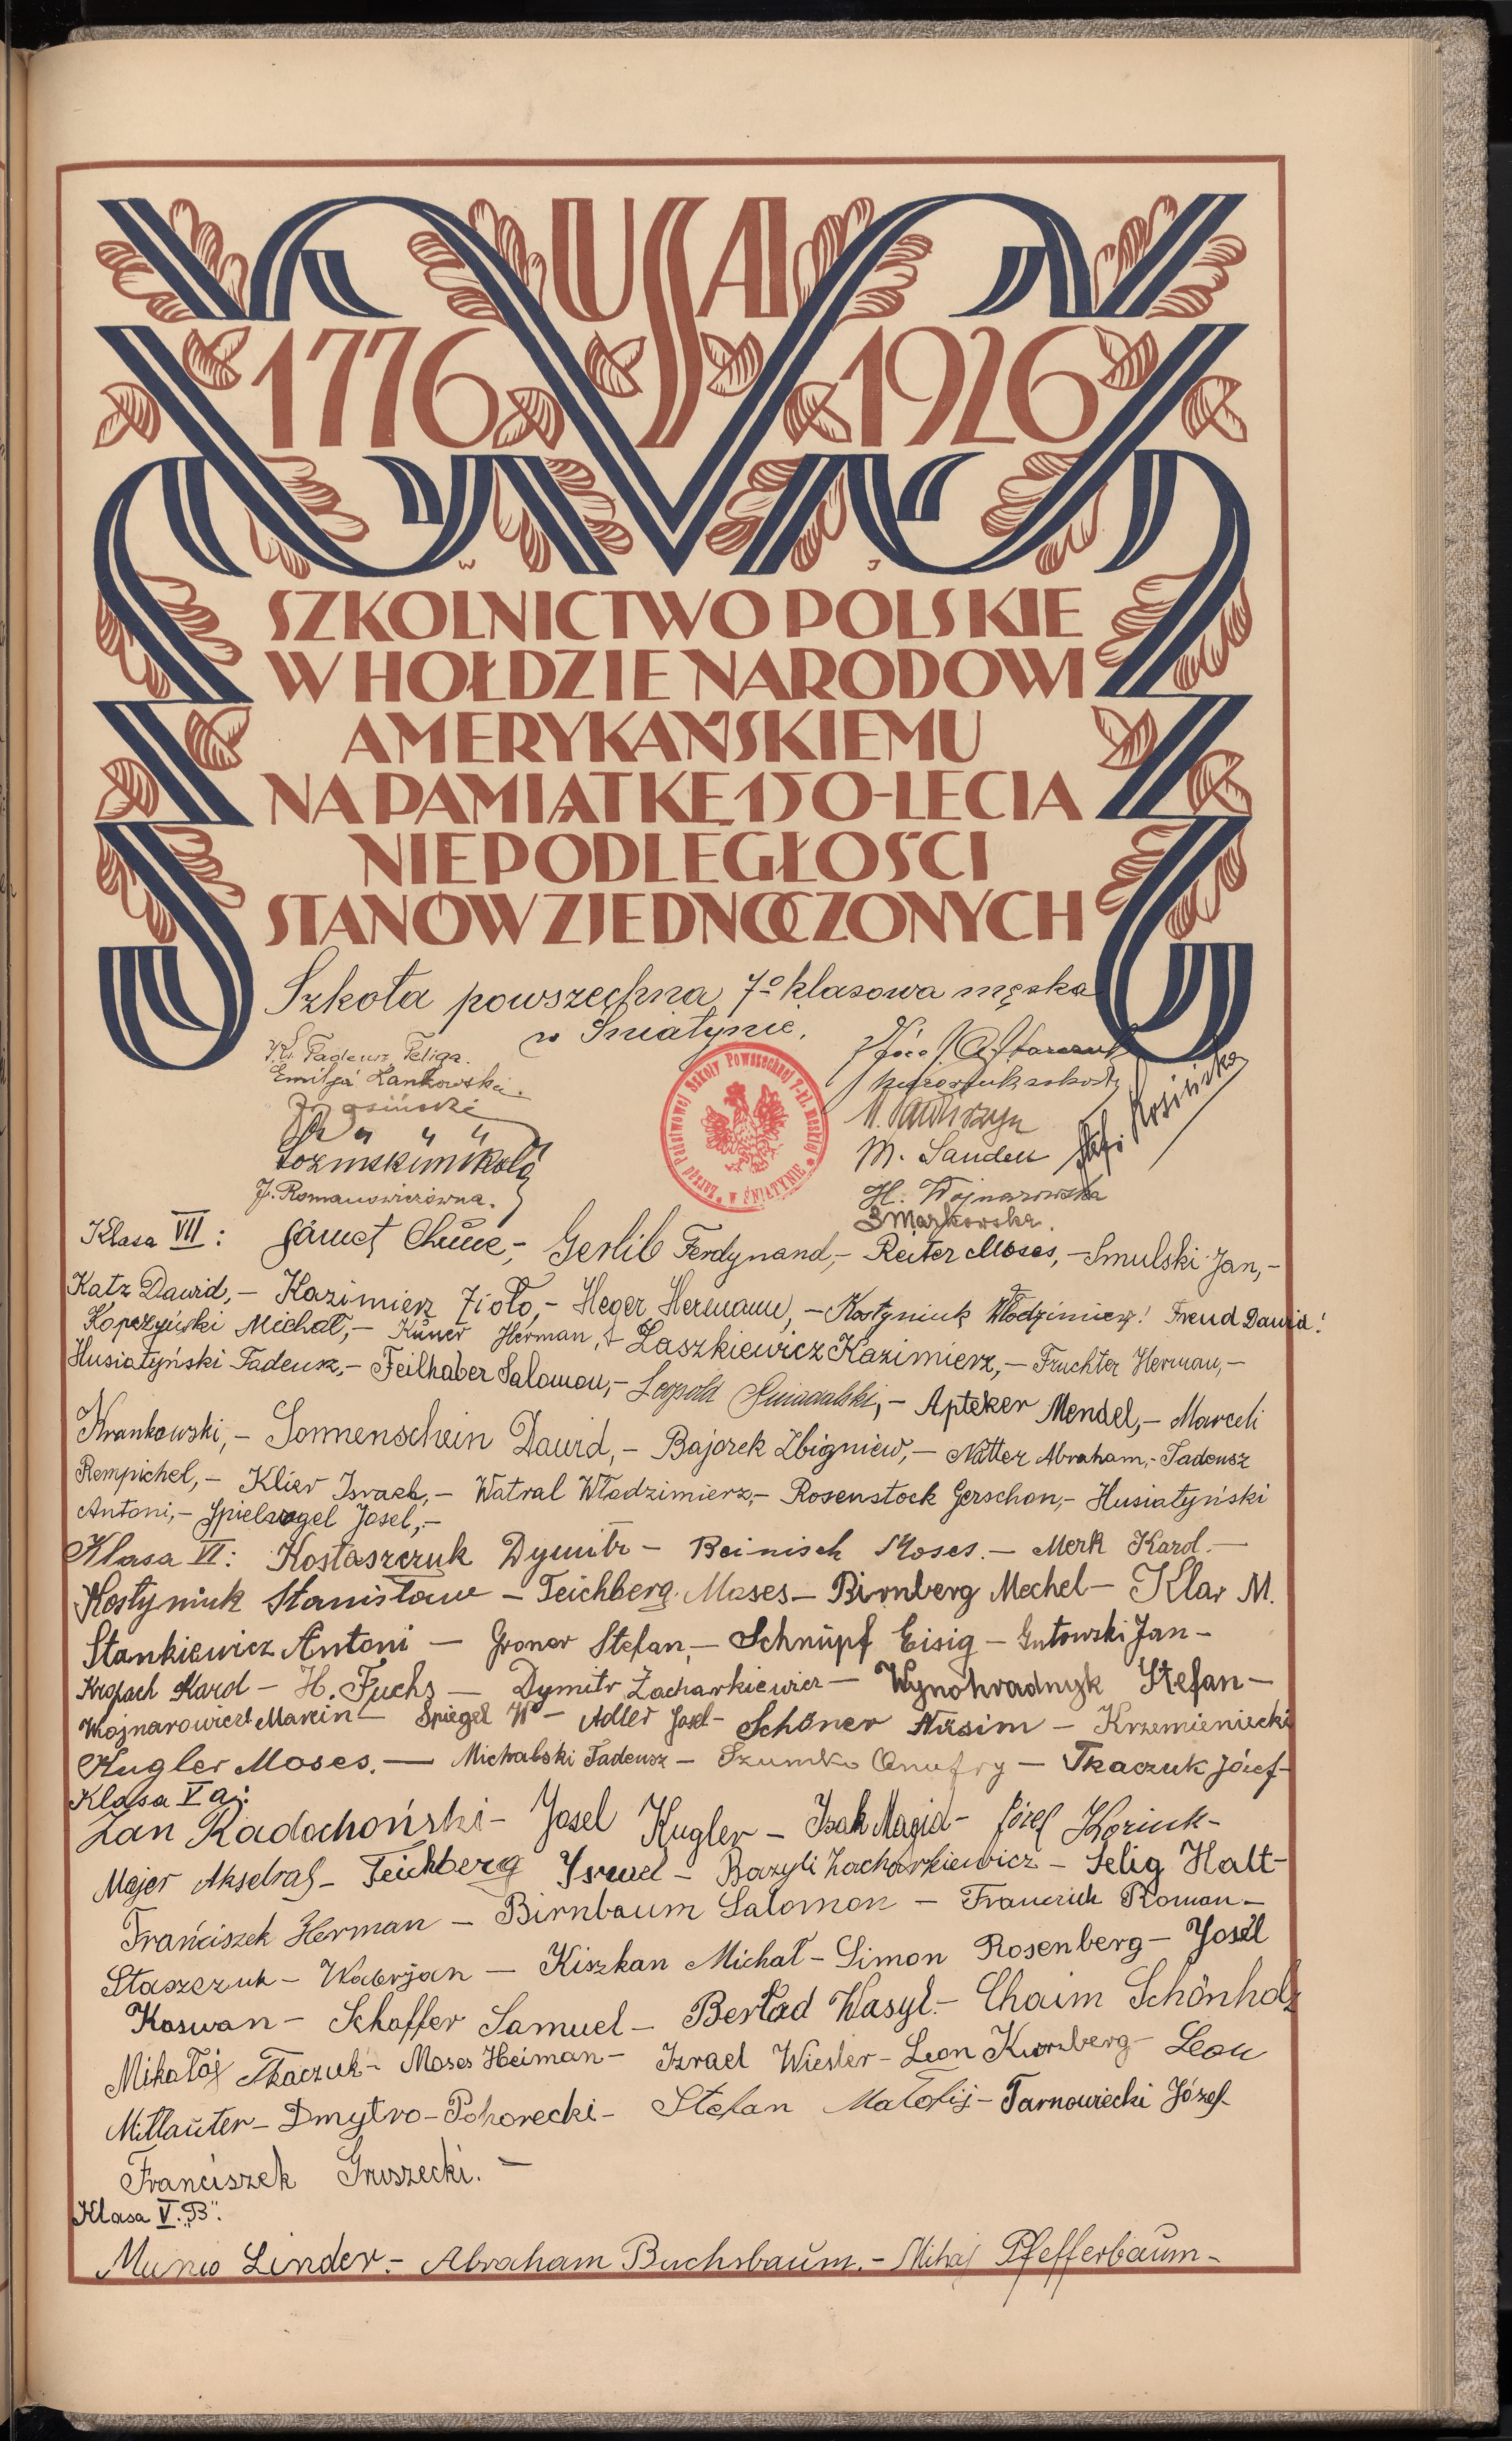 USA
1776 1926
W J
SZKOLNICTWO POLSKIE
W HOŁDZIE NARODOWI
AMERYKAŃSKIEMU
NA PAMIĄTKĘ 150-LECIA
NIEPODLEGŁOŚCI
STANÓW ZJEDNOCZONYCH
Szkoła powszechna 7-o klasowa męska
w Śniatynie.
Tadeusz Peliga.
Emilja Lankowska.
J. Romanowiczówna.
M. Sauden
H. Wojnarowska
S Markowska.
Zarząd Państwowej Szkoły Powszechnej 7-kl. męskiej w ŚNIATYNIE
Klasa VII: Gerlib Ferdynand,- Reiter Moses,- Smulski Jan,-
Katz Dawid,- Kazimierz Zioło,- Heger Hermann,- Kostyniuk Włodzimierz! Freud Dawid!
Kopczyński Michał,- Küner Herman,- Łaszkiewicz Kazimierz,- Fruchter Herman,-
Husiatyński Tadeusz,- Feilhaber Salomon,- Leopold Apteker Mendel,- Marceli
Krankowski,- Sonnenschein Dawid,- Bajorek Zbigniew,- Natter Abraham,- Tadeusz
Rempichel,- Klier Israel,- Watral Włodzimierz,- Rosenstock Gerschon,- Husiatyński
Antoni,- Spielvogel Josel,-
Klasa VI: Kostaszczuk Dymitr - Beinisch Moses.- Merk Karol.-
Kostyniuk Stanisław - Teichberg Moses - Birnberg Mechel - Klar M.
Stankiewicz Antoni - Groner Stefan,- Schnüpf Eisig - Gutowski Jan -
Kropach Karol - H. Fuchs - Dymitr Zacharkiewicz - Wynohradnyk Stefan -
Wojnarowicz Marcin - Spiegel W - Adler Josel - Schöner Nusim - Krzemieniecki
Kugler Moses.- Michalski Tadeusz - Szumko Onufry - Tkaczuk Józef -
Klasa V a:
Jan Radochoński - Josel Kugler - Isak Magid - Józef Koziuk -
Majer Akselrad - Teichberg Israel - Bazyli Zacharkiewicz - Selig Halt -
Franciszek Herman - Birnbaum Salomon - Roman -
Staszczuk - Waberjan - Kiszkan Michał - Simon Rosenberg - Josel
Koswan - Schaffer Samuel - Berład Wasyl - Chaim Schönholz
Mikołaj Tkaczuk - Moses Heiman - Izrael Wiesler - Leon Kurzberg - Leon
Mitlauter - Dmytro - Pohorecki - Stefan Matofij - Tarnowiecki Józef -
Franciszek Gruszecki. -
Klasa V. „B".
Munio Linder.- Abraham Buchsbaum.- Mihaj Pfefferbaum -